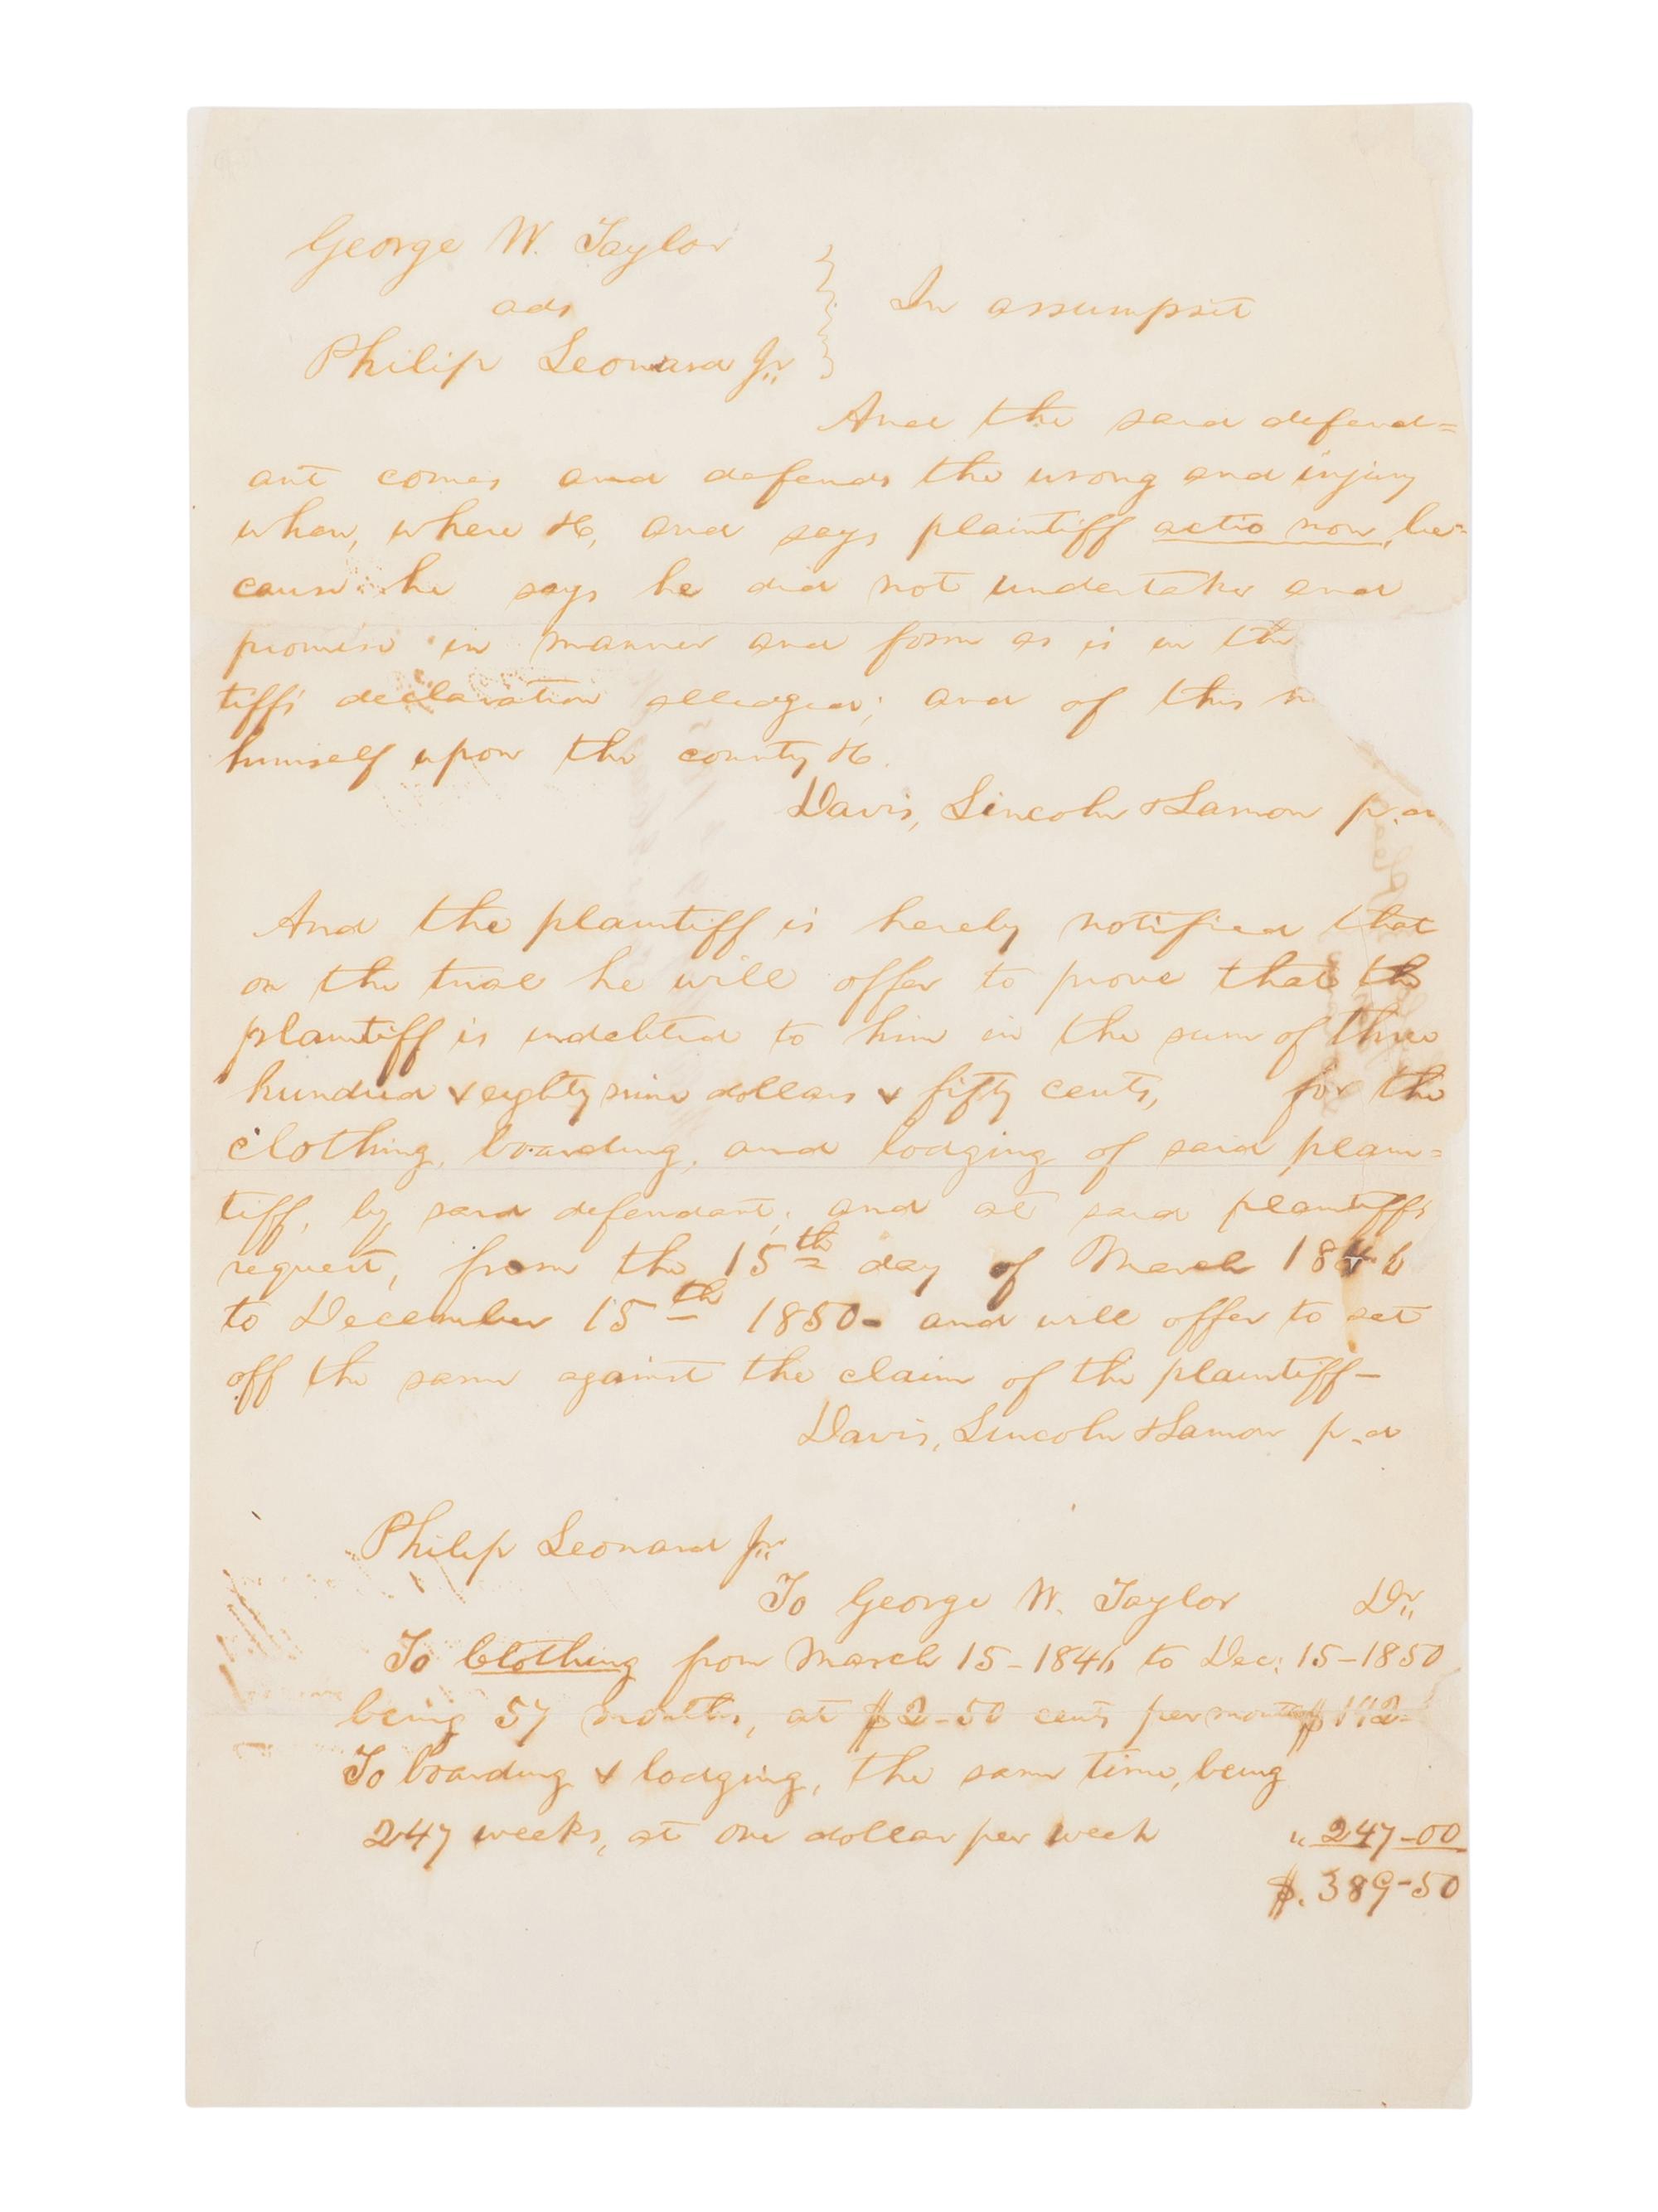 George W. Taylor
ads
Philip Leonard Jr.
In assumpsit
And the said defend=
ant comes and defends the wrong and injury
when, where &c, and says plaintiff actio non, be=
cause he says he did not undertake and
promise in manner and form as is in the
tiffs declaration alledged; and of this
himself upon the county &c.
Davis, Lincoln & Lamon p.a
And the plaintiff is hereby notified that
on the trial he will offer to prove that the
plaintiff is indebted to him in the sum of three
hundred & eighty nine dollars & fifty cents, for the
clothing, boarding, and lodging of said plain=
tiff, by said defendant, and at said plaintiffs
request, from the 15th day of March 1846
to December 15th 1850- and will offer to set
off the same against the claim of the plaintiff-
Davis, Lincoln & Lamon p.a
Philip Leonard Jr.
To George W. Taylor Dr.
To Clothing from March 15-1846 to Dec: 15-1850
being 57 months, at $2-50 cents per month $ 142-
To boarding & lodging, the same time, being
247 weeks, at one dollar per week " 247-00
$. 389-50